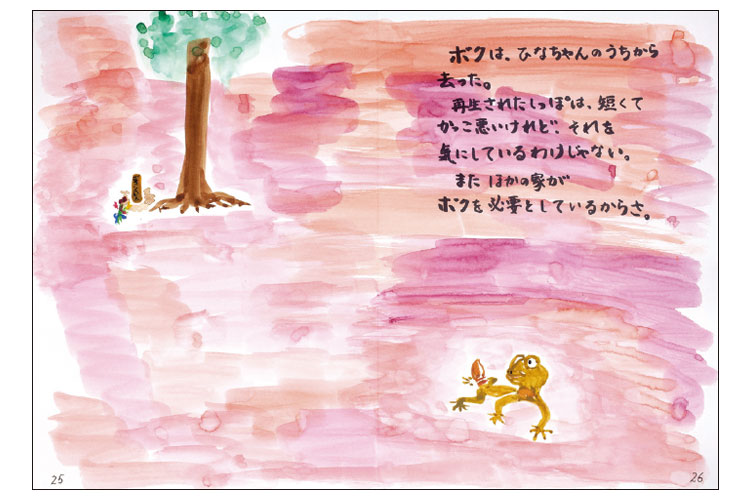 ボクは、ひなちゃんのうちから
去った。
再生されたしっぽは、短くて
かっこ悪いけれど、それを
気にしているわけじゃない。
また ほかの家が
ボクを必要としているからさ。
25
26